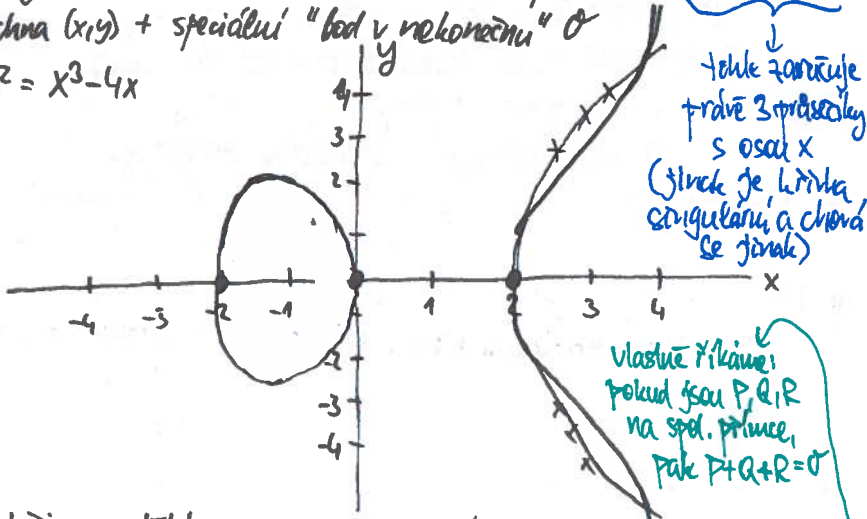 (x,y) + speciální "bod v nekonečnu" O
y
² = x³-4x
4
3
2
-4 -3 -2 -1 1 2 3 4 x
-2
-3
-4
tohle zaručuje
právě 3 průsečíky
s osou x
(jinak je křivka
singulární a chová
se jinak)
vlastně říkáme:
pokud jsou P,Q,R
na spol. přímce,
pak P+Q+R=O